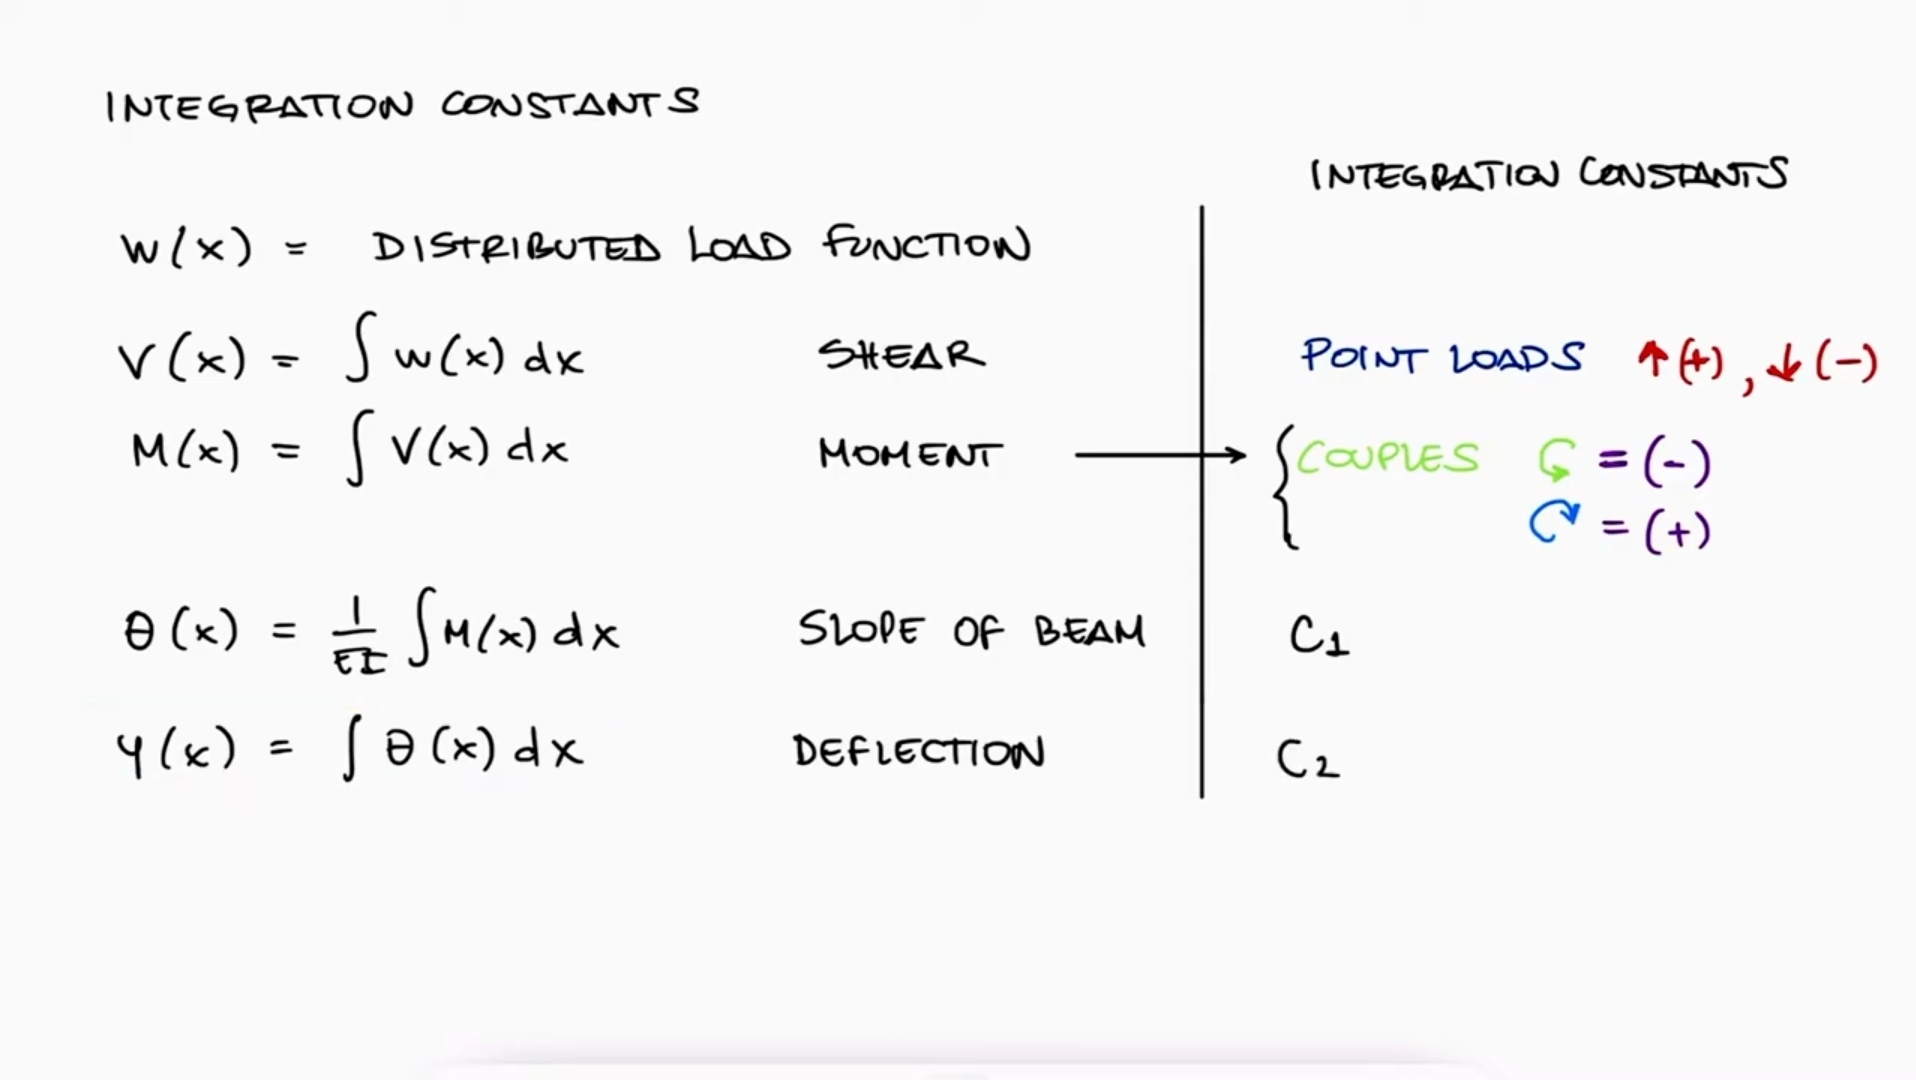 INTEGRATION CONSTANTS
INTEGRATION CONSTANTS
W(x) = DISTRIBUTED LOAD FUNCTION
V(x) = ∫ w(x) dx SHEAR POINT LOADS ↑(+), ↓(-)
M(x) = ∫ V(x) dx MOMENT → { COUPLES ↺ = (-)
↻ = (+)
θ(x) = 1/EI ∫ M(x) dx SLOPE OF BEAM C1
y(x) = ∫ θ(x) dx DEFLECTION C2